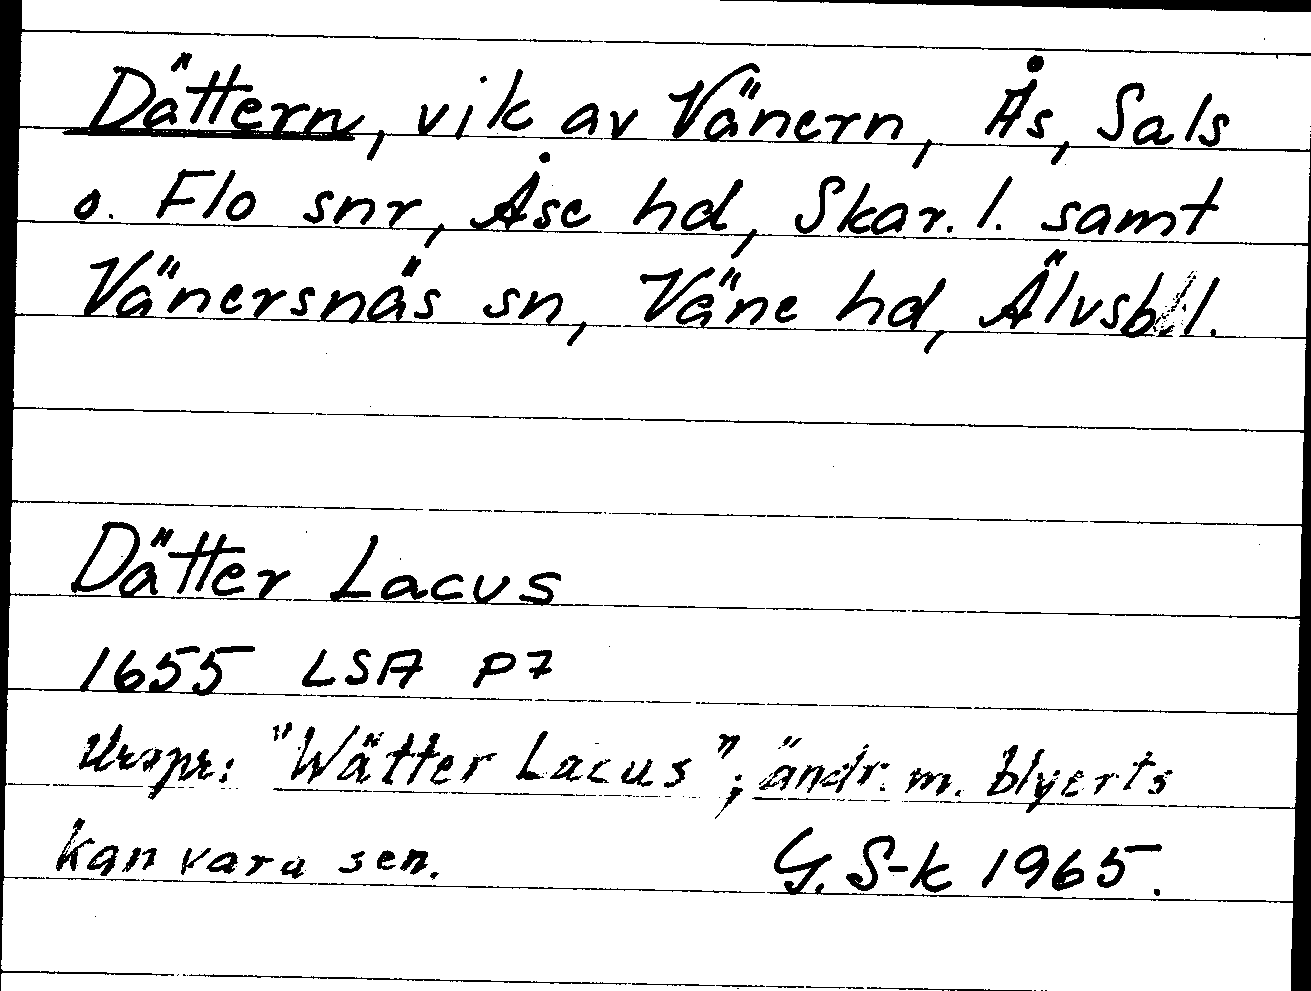 Dättern, vik av Vänern, Ås, Sals
o. Flo snr, Åse hd, Skar. l. samt
Vänersnäs sn, Väne hd, Älvsb. l.
Dätter Lacus
1655 LSA P7
Urspr: "Wätter Lacus"; ändr. m. blyerts
kan vara sen. G. S-k 1965.